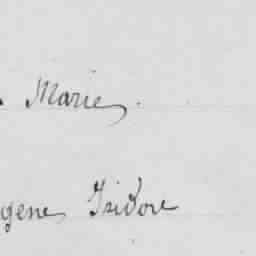 Marie
gene Isidore